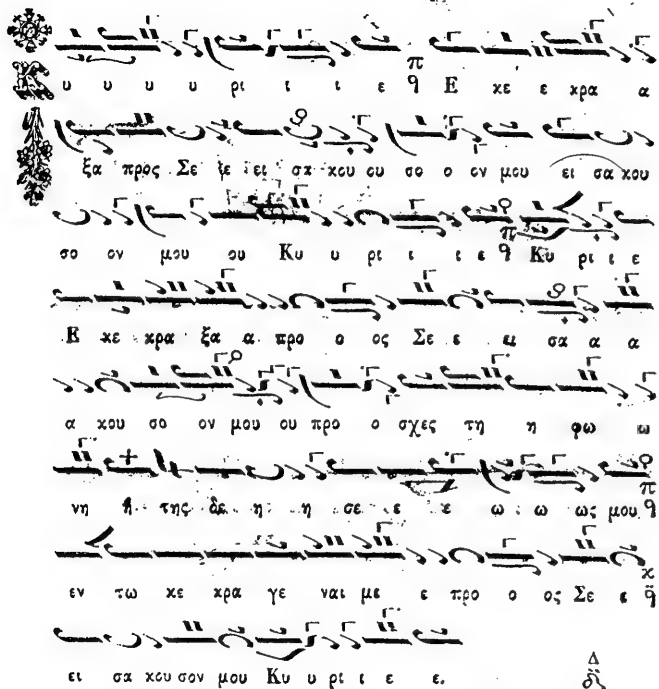 Κυ υ υ υ ρι ι ι ε π q Ε κε ε κρα α
ξα προς Σε ε ει σα κου ου σο ο ον μου ει σα κου
σο ον μου ου Κυ υ ρι ι ι ε π q Κυ ρι ι ε
Ε κε κρα ξα α προ ο ος Σε ε ει σα α α
α κου σο ον μου ου προ ο σχες τη η φω ω
νη ῆ της δε η η σε ε ε ω ω ως μου π q
εν τω κε κρα γε ναι με ε προ ο ος Σε ε κ q
ει σα κου σον μου Κυ υ ρι ι ε ε. Δ